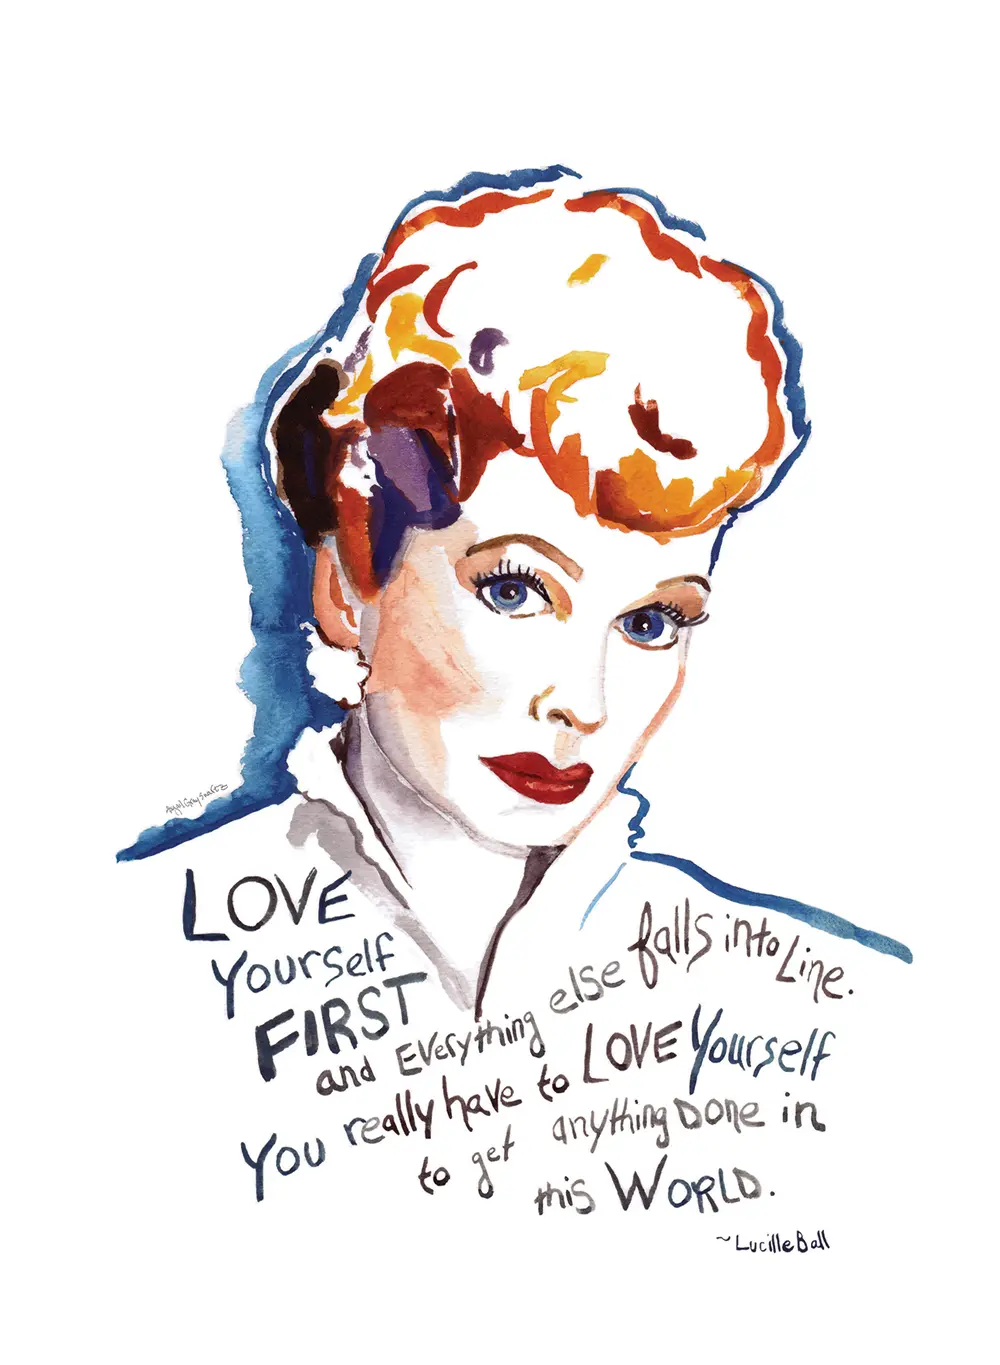 LOVE
Yourself
FIRST
and EVerything else falls into Line.
You really have to LOVE Yourself
to get anything Done in
this WORLD.
~LucilleBall